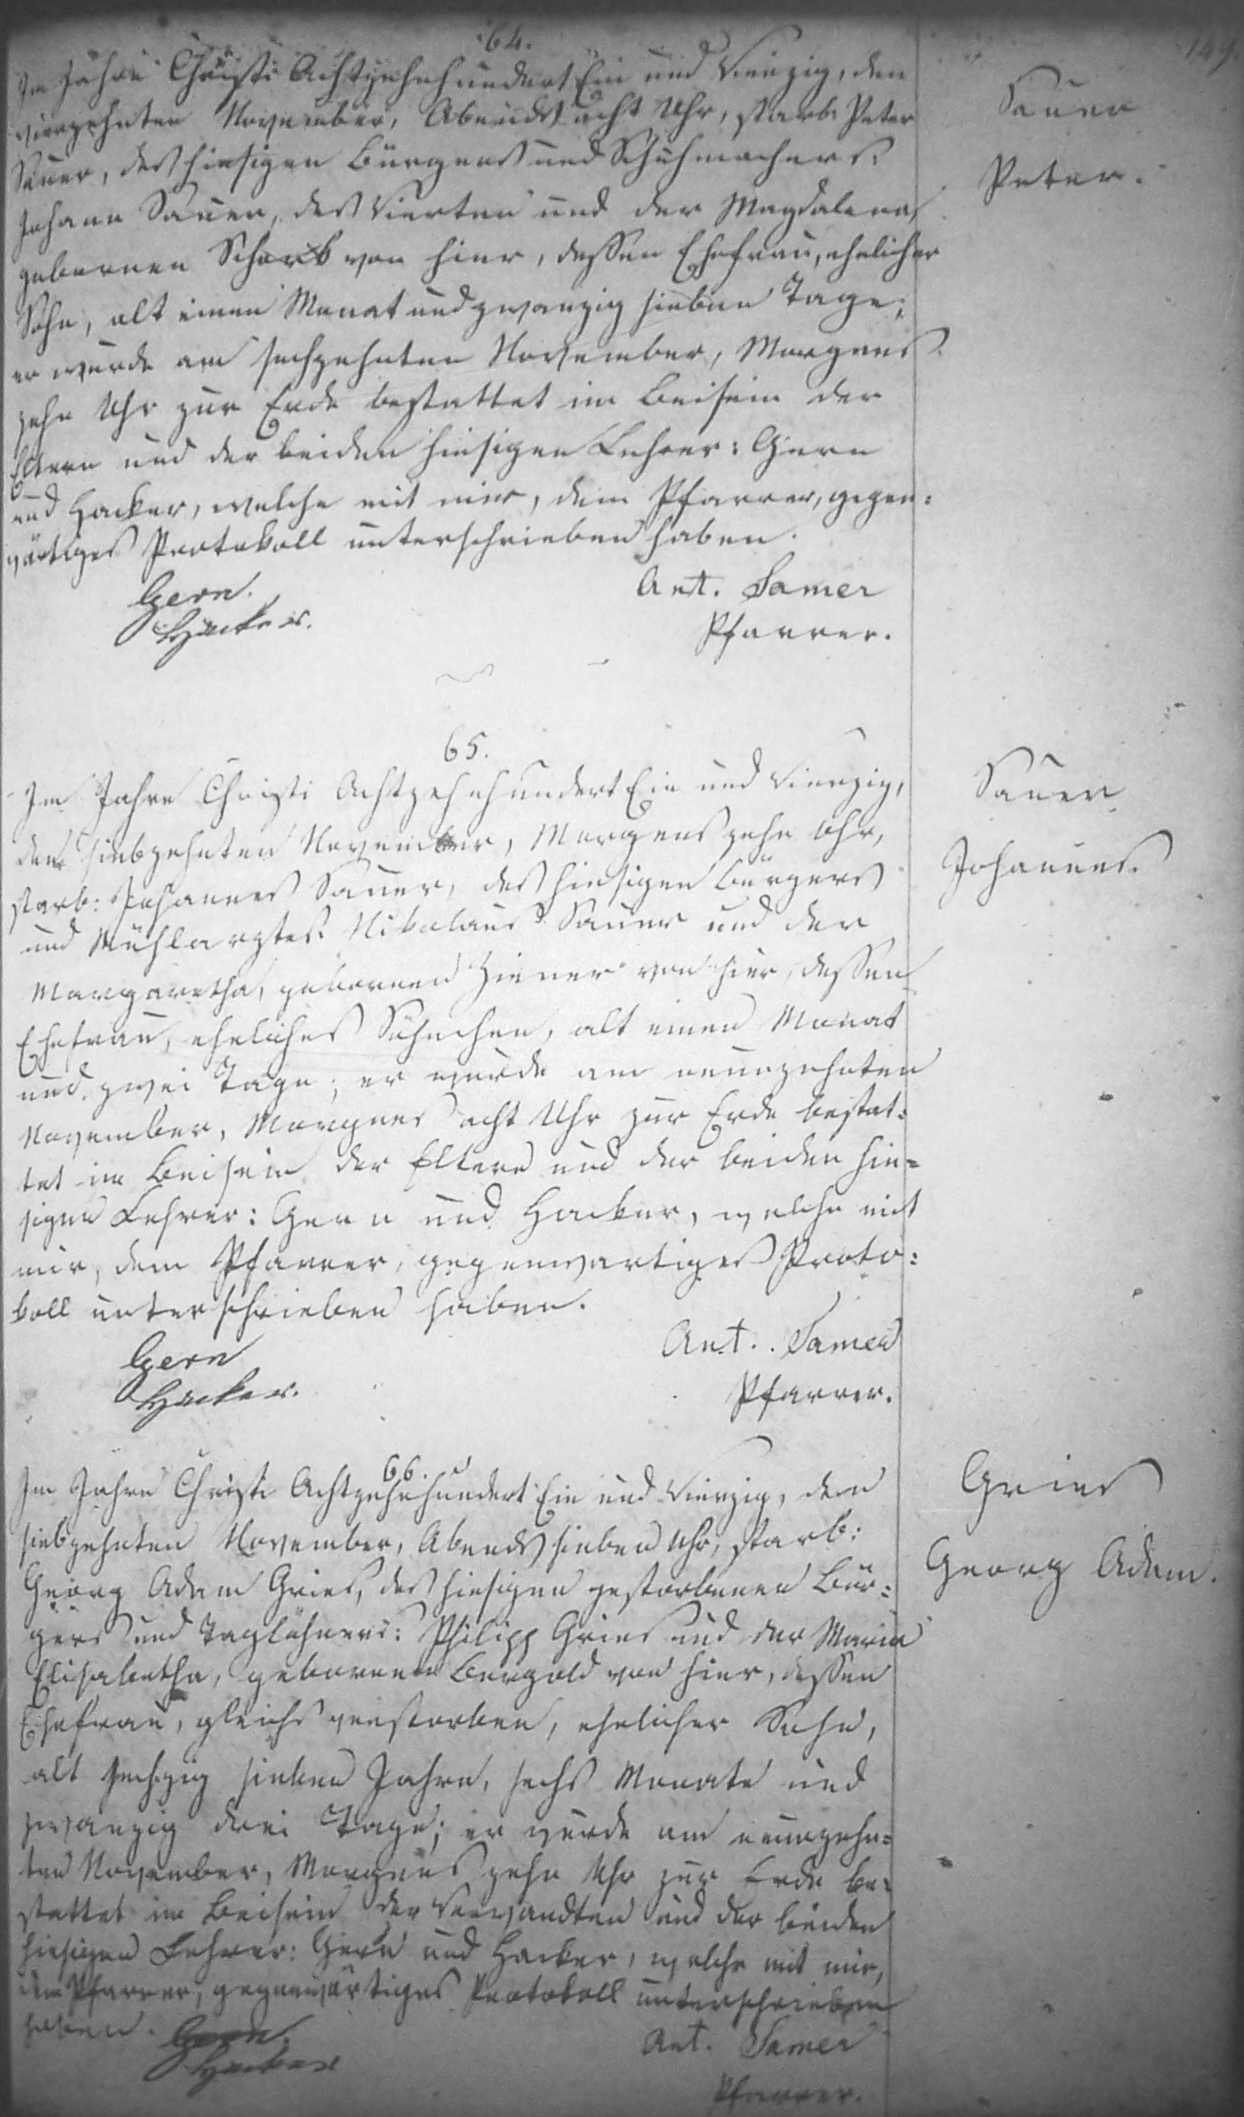 149.
64.
Im Jahre Christi Achtzehnhundert Ein und Vierzig, den
vierzehnten November, Abends acht Uhr, starb Peter
Sauer, des hiesigen Bürgers und Schuhmachers:
Johann Sauer, des Vierten und der Magdalena,
gebornen Schork von hier, dessen Ehefrau, ehelicher
Sohn, alt einen Monat und zwanzig sieben Tage;
er wurde am sechzehnten November, Morgens
zehn Uhr zur Erde bestattet im Beisein der
Eltern und der beiden hiesigen Lehrer: Gern
und Hacker, welche mit mir, dem Pfarrer, gegen=
wärtiges Protokoll unterschrieben haben.
Gern.
Hacker.
Ant. Samer
Pfarrer.
Sauer
Peter.
65.
Im Jahre Christi Achtzehnhundert Ein und Vierzig,
den siebzehnten November, Morgens zehn Uhr,
starb: Johannes Sauer, des hiesigen Bürgers
und Mühlarztes Nikolaus Sauer und der
Margaretha, gebornen Ziener von hier, dessen
Ehefrau, eheliches Söhnchen, alt einen Monat
und zwei Tage; er wurde am neunzehnten
November, Morgens acht Uhr zur Erde bestat=
tet im Beisein der Eltern und der beiden hie=
sigen Lehrer: Gern und Hacker, welche mit
mir, dem Pfarrer, gegenwärtiges Proto=
koll unterschrieben haben.
Gern
Hacker.
Ant. Samer
Pfarrer.
Sauer
Johannes.
66.
Im Jahre Christi Achtzehnhundert Ein und Vierzig, den
siebzehnten November, Abends sieben Uhr, starb:
Georg Adam Gries, des hiesigen gestorbenen Bür=
gers und Taglöhners: Philipp Gries und der Maria
Elisabetha, gebornen Bergold von hier, dessen
Ehefrau, gleichs verstorben, ehelicher Sohn,
alt sechzig sieben Jahre, sechs Monate und
zwanzig drei Tage; er wurde am neunzehn=
ten November, Morgens zehn Uhr zur Erde be=
stattet im Beisein der Verwandten und der beiden
hiesigen Lehrer: Gern und Hacker, welche mit mir,
dem Pfarrer, gegenwärtiges Protokoll unterschrieben
haben.
Gern.
Hacker
Ant. Samer
Pfarrer.
Gries
Georg Adam.